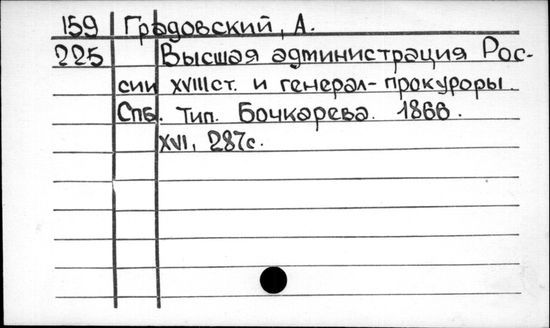 159 Градовский, А.
225 Высшая администрация Рос-
сии XVIIIст. и генерал-прокуроры.
Спб. Тип. Бочкарева. 1866.
XVI, 287с.